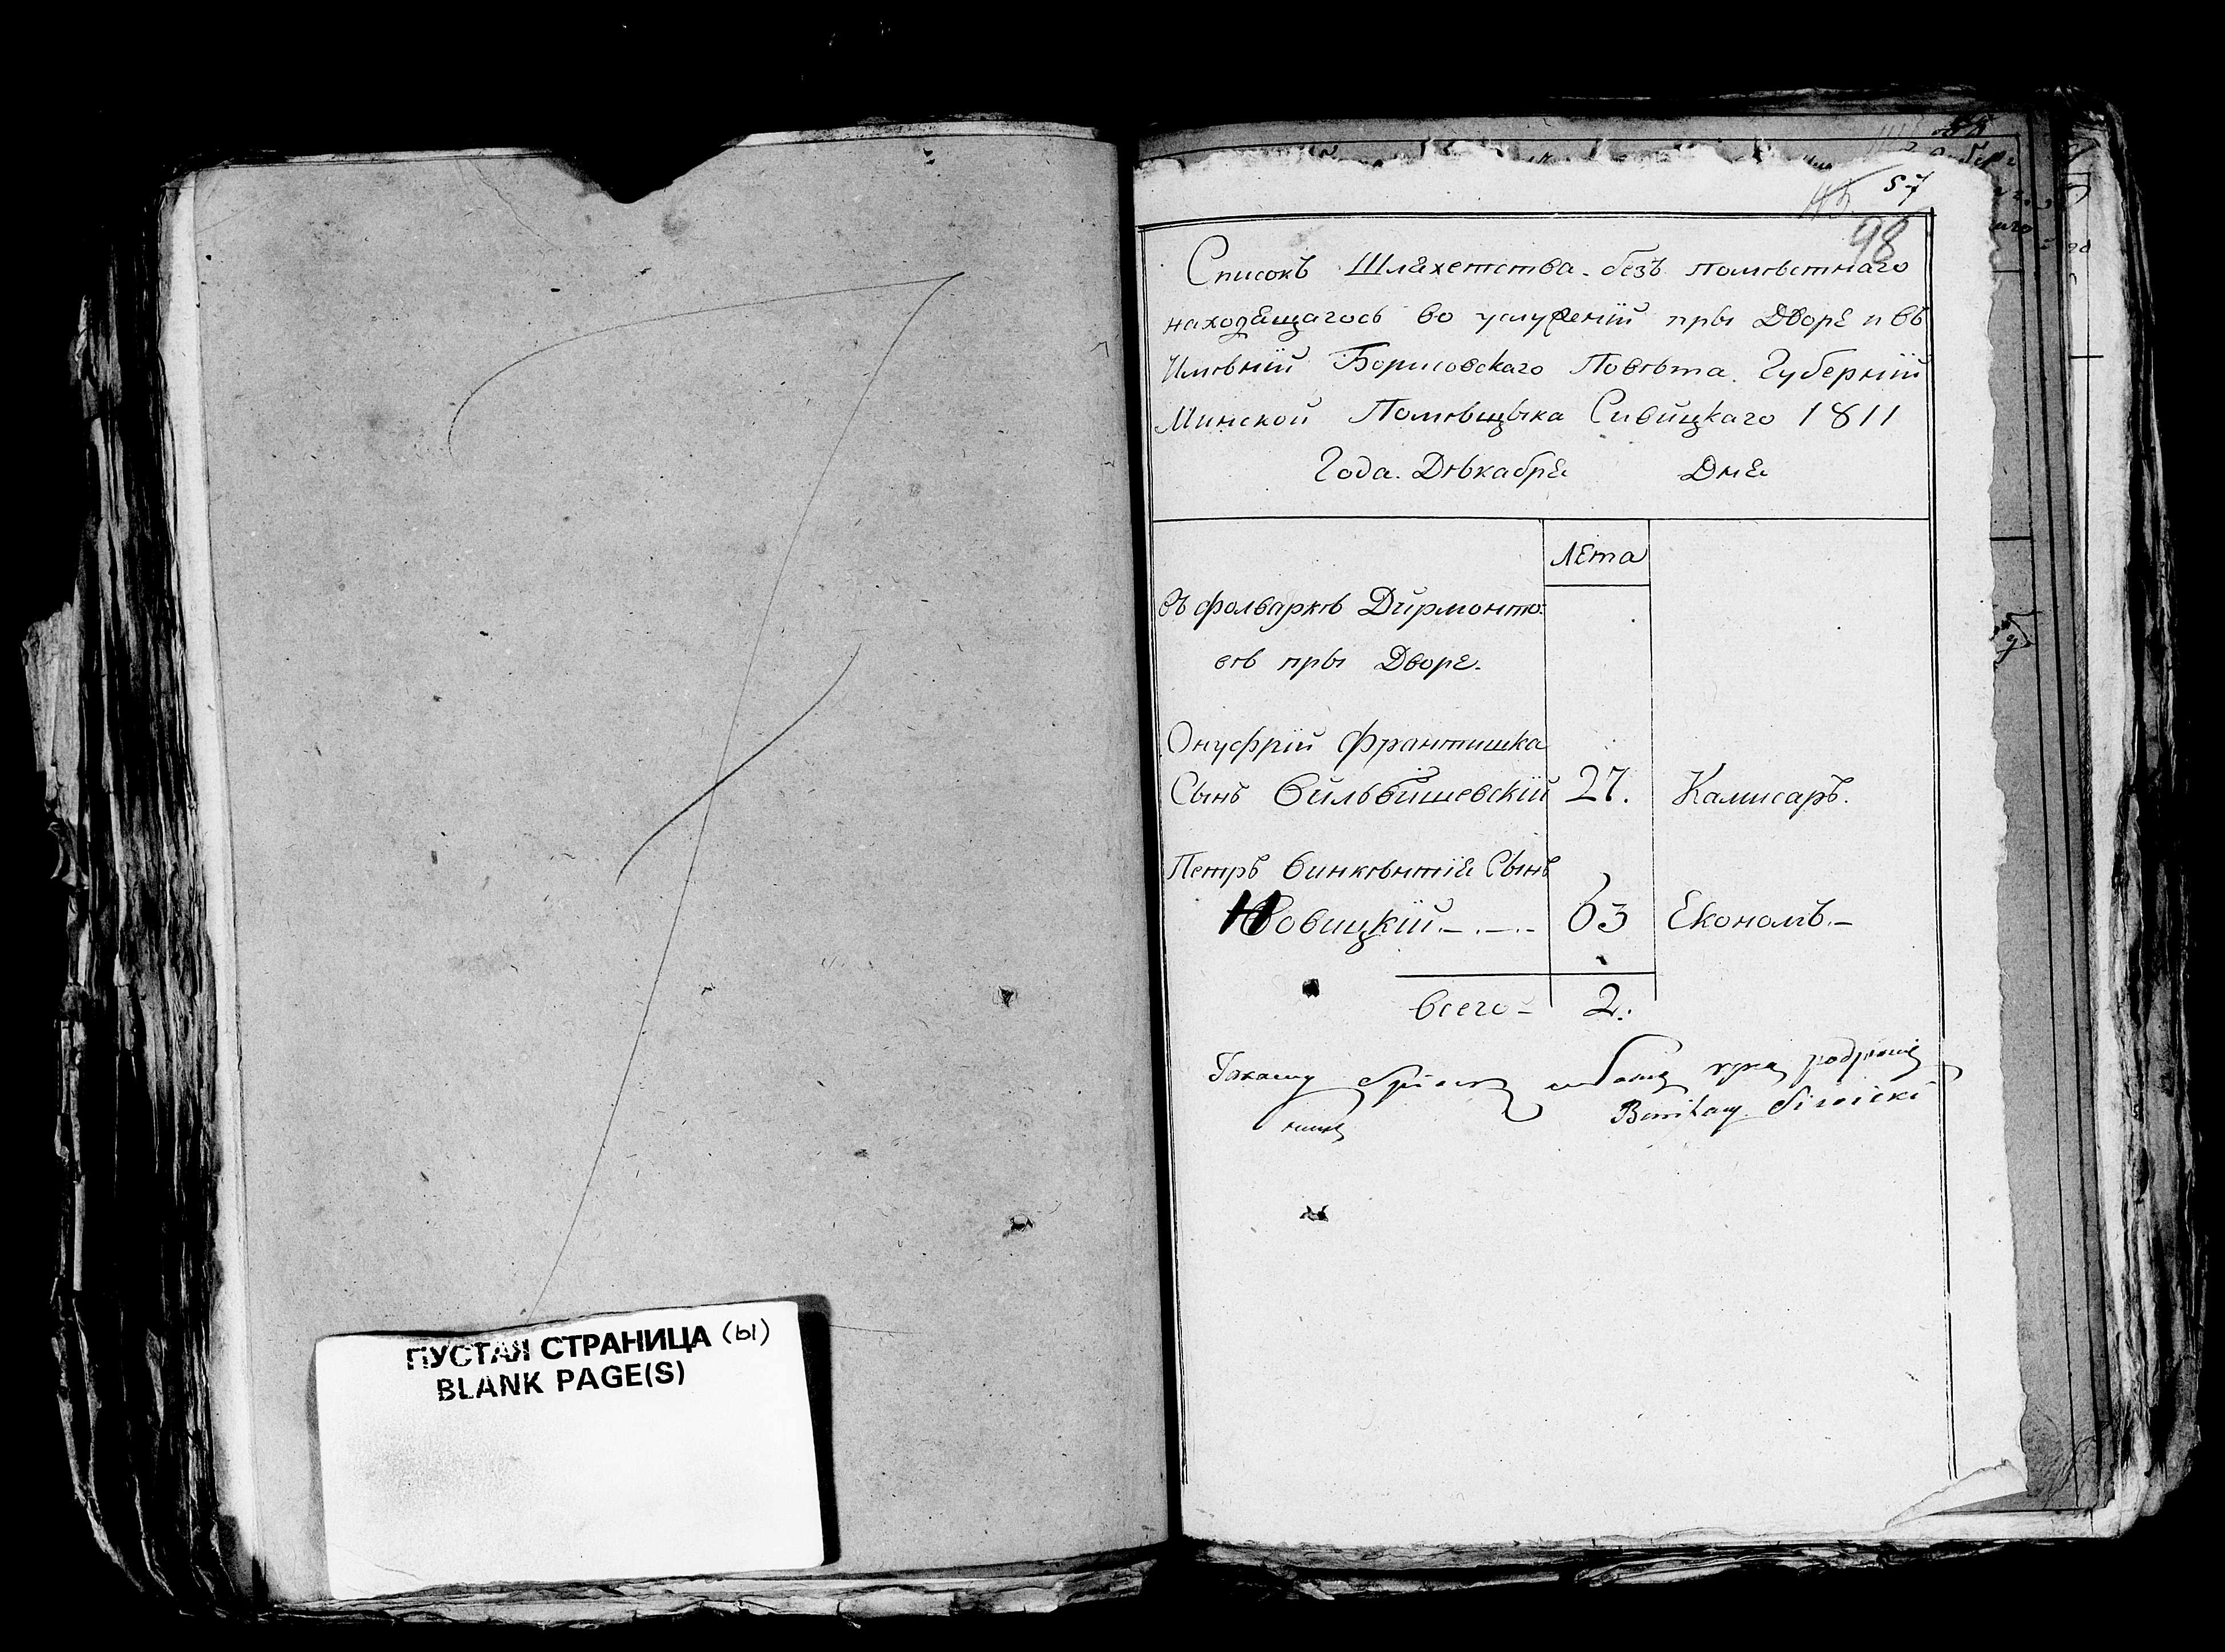 ПУСТАЯ СТРАНИЦА (ы)
BLANK PAGE(S)
57
98
Списокъ Шляхетства. безъ помѣстнаго
находящагось во услуженій пры Дворѣ и въ
Имѣній Борисовскаго Повѣта. Губерній
Минской Помѣщыка Сивицкаго 1811
Года. Дѣкабря Дня
Лета
въ фолваркѣ Дирмонто:
вѣ пры Дворе.
Онуфрій Франтишка
Сынъ Вильбишевскій 27. Камисаръ.
Петръ Винкѣнтія Сынъ
Новицкій 63 Економъ.
Всего 2.
Siwicki